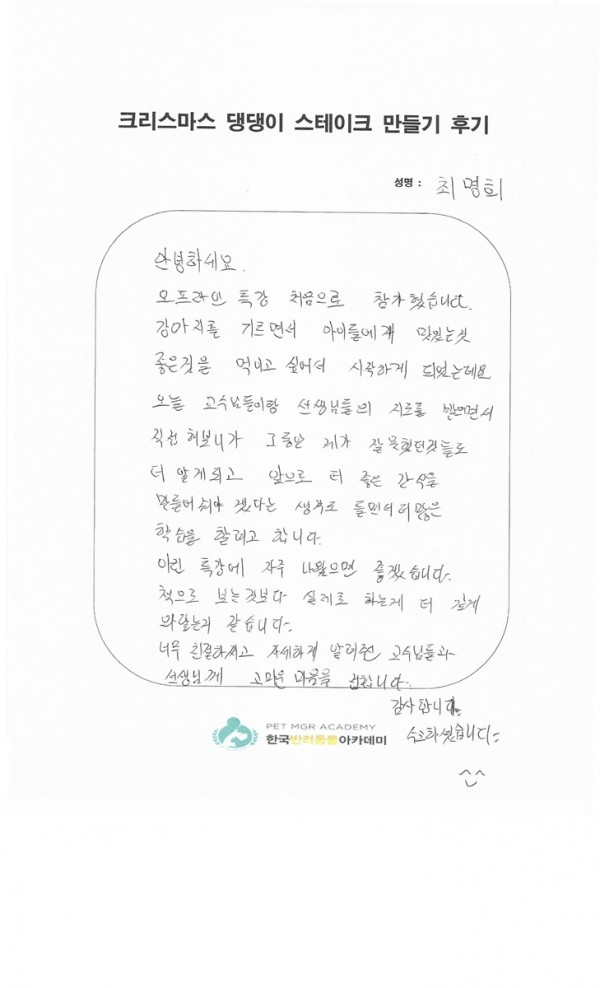 크리스마스 댕댕이 스테이크 만들기 후기
성명 : 최명희
안녕하세요.
오프라인 특강 처음으로 참가했습니다.
강아지를 기르면서 아이들에게 맛있는것
좋은것을 먹이고 싶어서 시작하게 되었는데요
오늘 교수님들이랑 선생님들의 지도를 받으면서
직접 해보니가 그동안 제가 잘못했던것들도
더 알게되고 앞으로 더 좋은 간식을
만들어줘야 겠다는 생각도 들면서 더많은
학습을 할려고 합니다.
이런 특강에 자주 나왔으면 좋겠습니다.
책으로 보는것보다 실제로 하는게 더 깊게
와닿는거 같습니다.
너무 친절하시고 자세하게 알려준 교수님들과
선생님께 고마운 마음을 전합니다.
감사합니다.
수고하셨습니다.
^^
PET MGR ACADEMY
한국반려동물아카데미